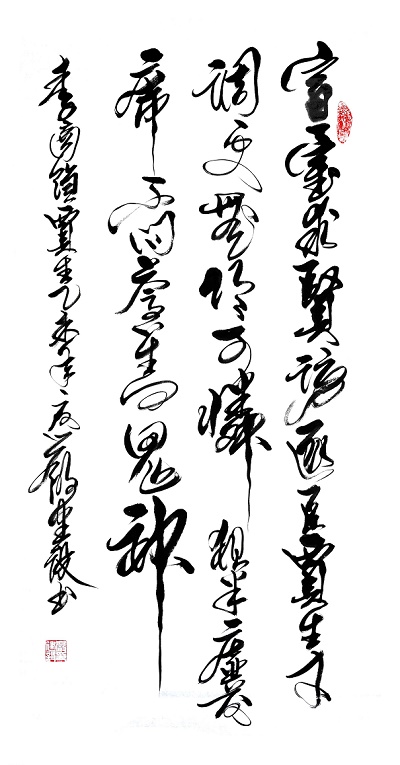 宣室求賢訪逐臣賈生才
调更無伦可憐夜半虚前
席不问苍生问鬼神
李商隐賈生乙未年书